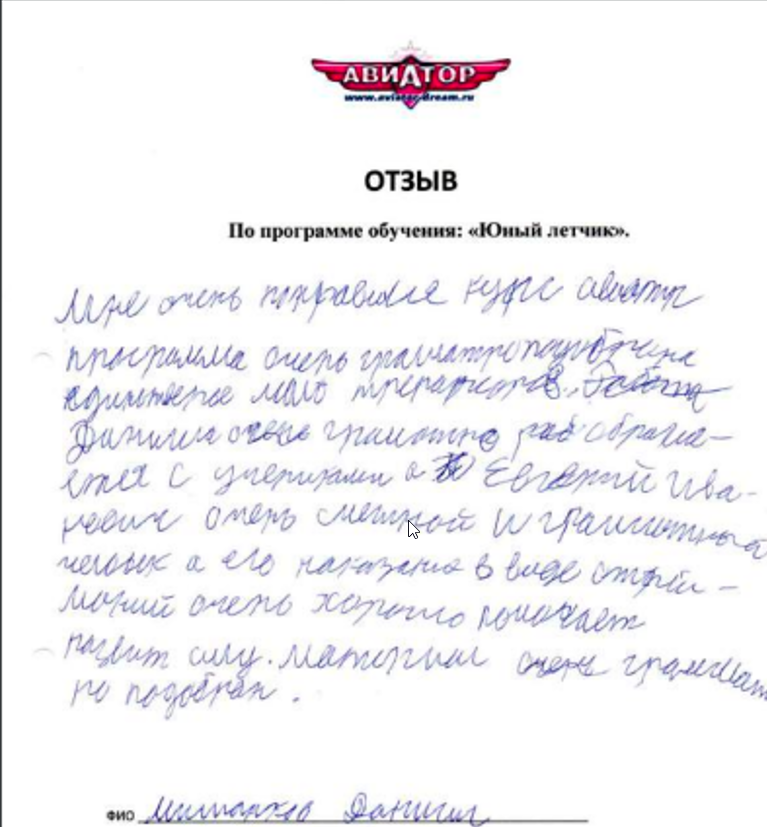 АВИАТОР
www.aviator-dream.ru
ОТЗЫВ
По программе обучения: «Юный летчик».
Мне очень понравился курс авиатор
программа очень грамотно
мало
Данила очень грамотно обраща-
ется с учениками а Евгений Ива-
нович очень смешной и грамотный
человек а его наказания в виде отжи-
маний очень хорошо помогает
развит силу. Материал очень грамот
но подобран.
ФИО Данила